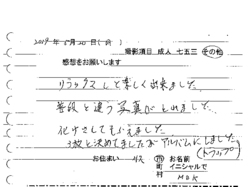 2019年 5月20日(月)
撮影項目 成人 七五三 その他
感想をお願いします
リラックスして楽しく出来ました。
普段と違う写真がとれました。
化けさしてもらえました。
1枚と決めてましたが アルバムにしました
(トラップ)
お住まい 市町村 お名前 イニシャルで
M.O.K